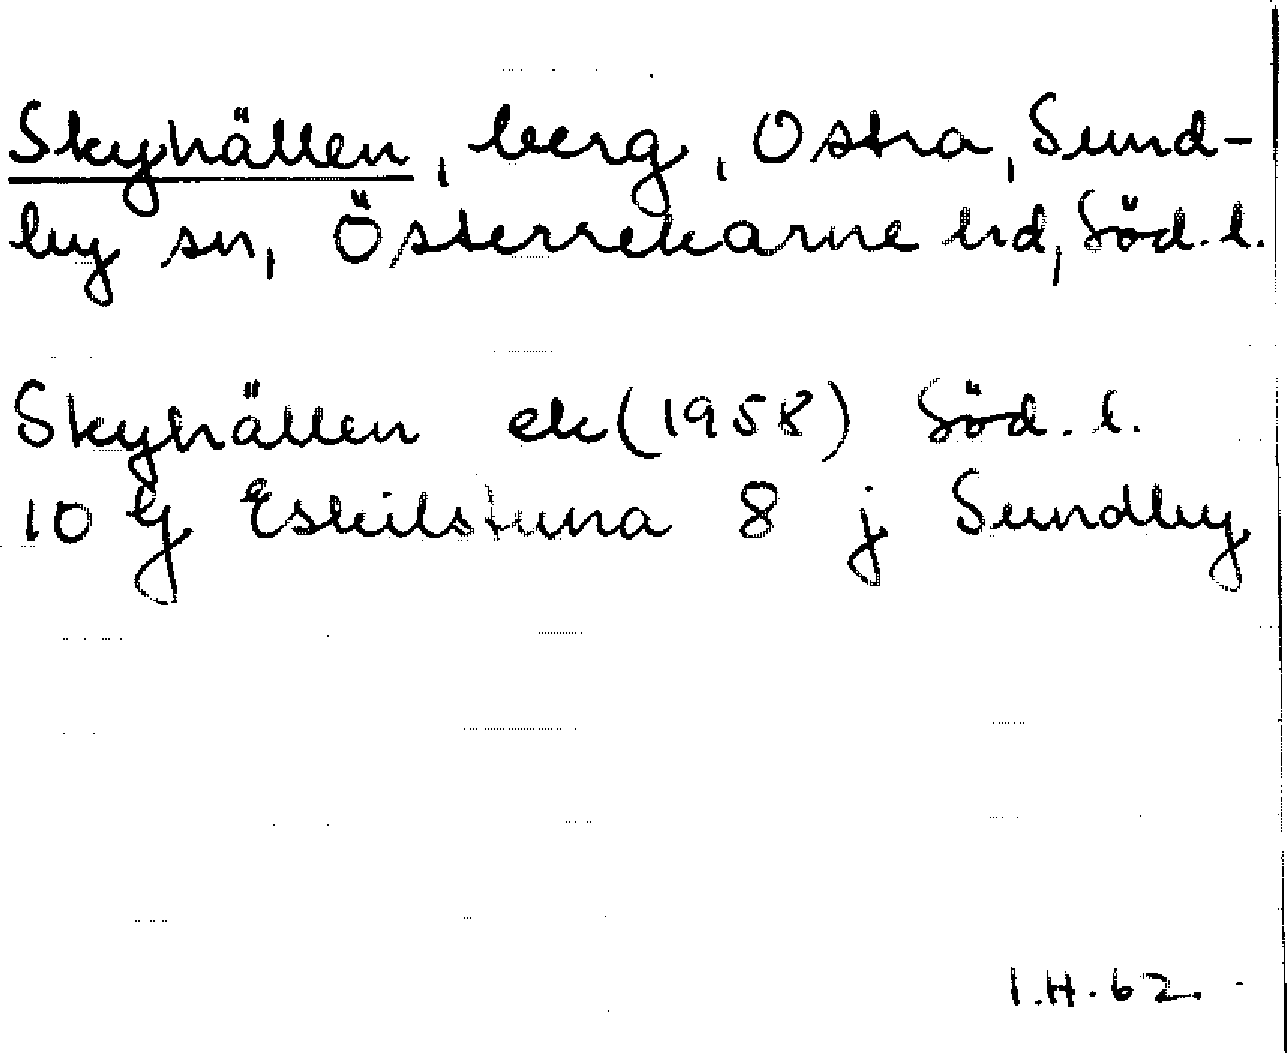 Skyhällen, berg, Ostra, Sund-
by sn, Österrekarne hd, Söd. l.
Skyhällen ek (1958) Söd. l.
10 G Eskilstuna 8 j Sundby
I.H. 62.